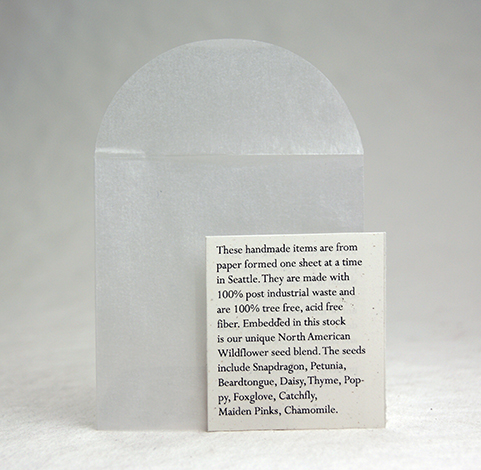 These handmade items are from
paper formed one sheet at a time
in Seattle. They are made with
100% post industrial waste and
are 100% tree free, acid free
fiber. Embedded in this stock
is our unique North American
Wildflower seed blend. The seeds
include Snapdragon, Petunia,
Beardtongue, Daisy, Thyme, Pop-
py, Foxglove, Catchfly,
Maiden Pinks, Chamomile.